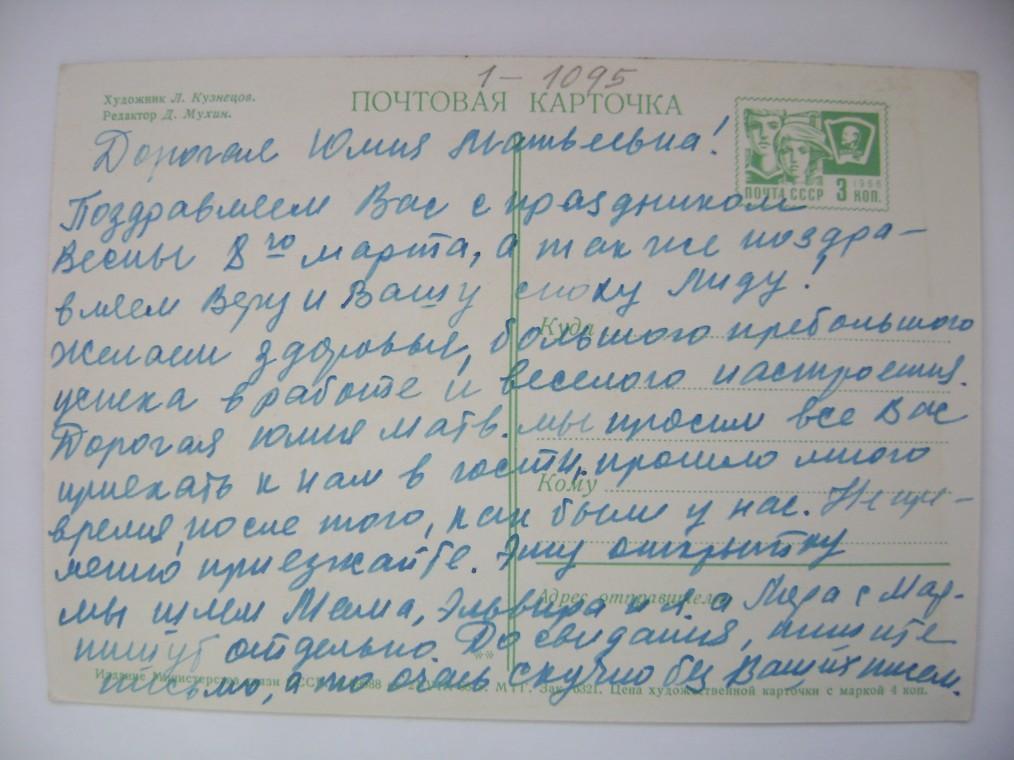 1-1095
Художник Л. Кузнецов.
Редактор Д. Мухин.
ПОЧТОВАЯ КАРТОЧКА
ПОЧТА СССР 3 КОП. 1966
Дорогая Юлия Матвеевна!
Поздравляем Вас с праздником
Весны 8го марта, а так же поздра-
вляем Веру и Вашу сноху Лиду!
Желаем здоровья, большого пребольшого
успеха в работе и веселого настроения.
Дорогая Юлия Матв. мы просим все Вас
приехать к нам в гости, прошло много
время, после того, как были у нас. Непре-
менно приезжайте. Эту открытку
мы шлем Мама, Эльвира и я. а Лида с Мар-
пишут отдельно. До свидания, пишите
письмо, а то очень скучно без Ваших писем.
Куда
Кому
Адрес отправителя
Издание Министерства связи СССР МТГ. Зак. 6321. Цена художественной карточки с маркой 4 коп.